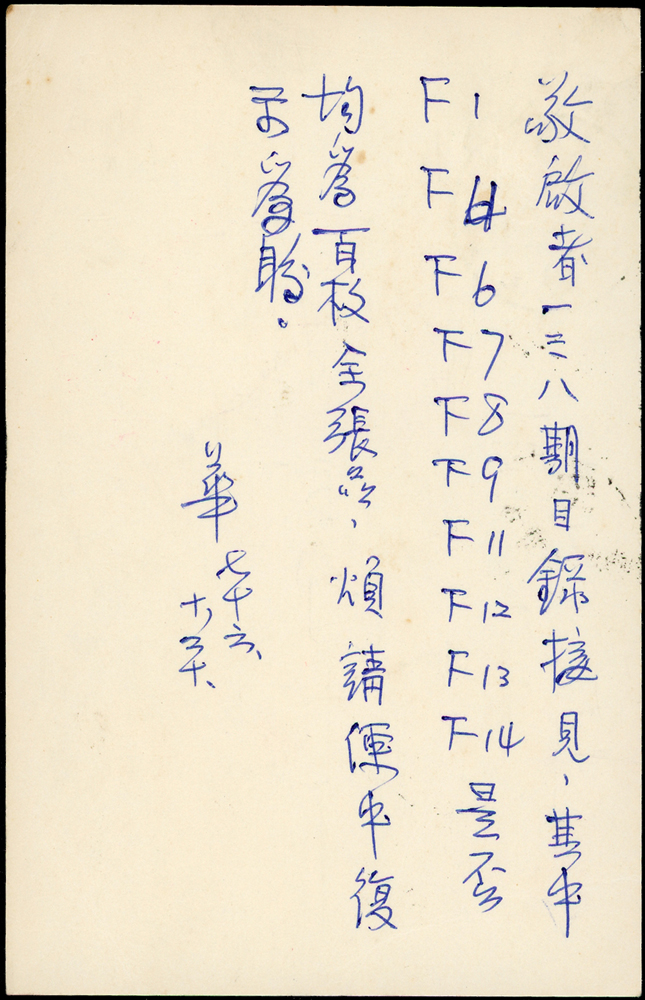 敬啟者一三八期目錄接見，其中
F1
F4
F6
F7
F8
F9
F11
F12
F13
F14 是否
均為百枚全張否，煩請便中復
示為盼。
華 七十六、
十、三十、